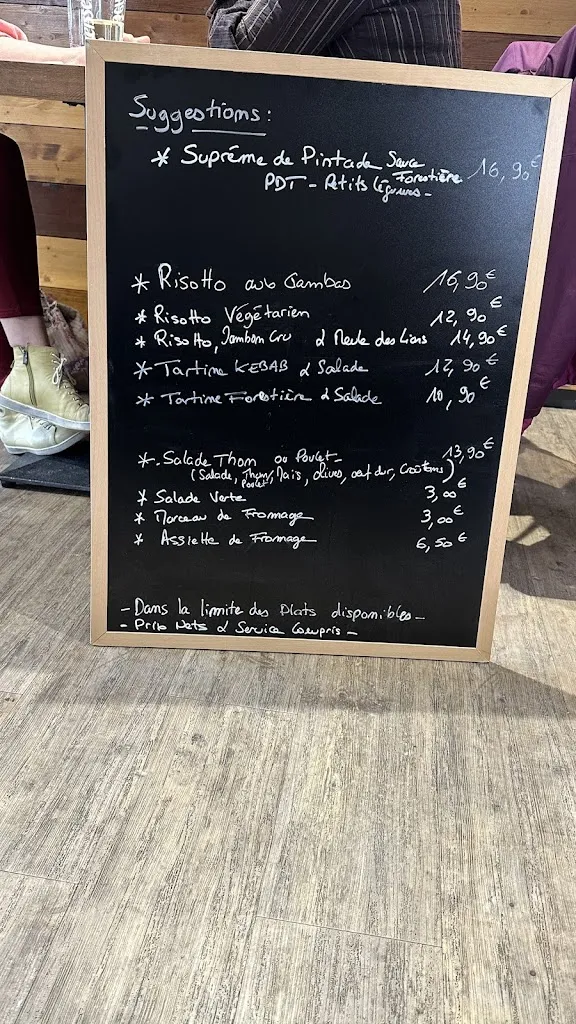 Suggestions:
* Suprême de Pintade Sauce Forestière 16,90€
PDT - Petits légumes -
* Risotto aux Gambas 16,90€
* Risotto Végétarien 12,90€
* Risotto, Jambon Cru & Meule des Lions 14,90€
* Tartine KEBAB & Salade 12,90€
* Tartine Forestière & Salade 10,90€
* - Salade Thon ou Poulet - 13,90€
(Salade, Thon/Poulet, Maïs, olives, oeuf dur, Croûtons)
* Salade Verte 3,00€
* Morceau de Fromage 3,00€
* Assiette de Fromage 6,50€
- Dans la limite des Plats disponibles -
- Prix Nets & Service Compris -